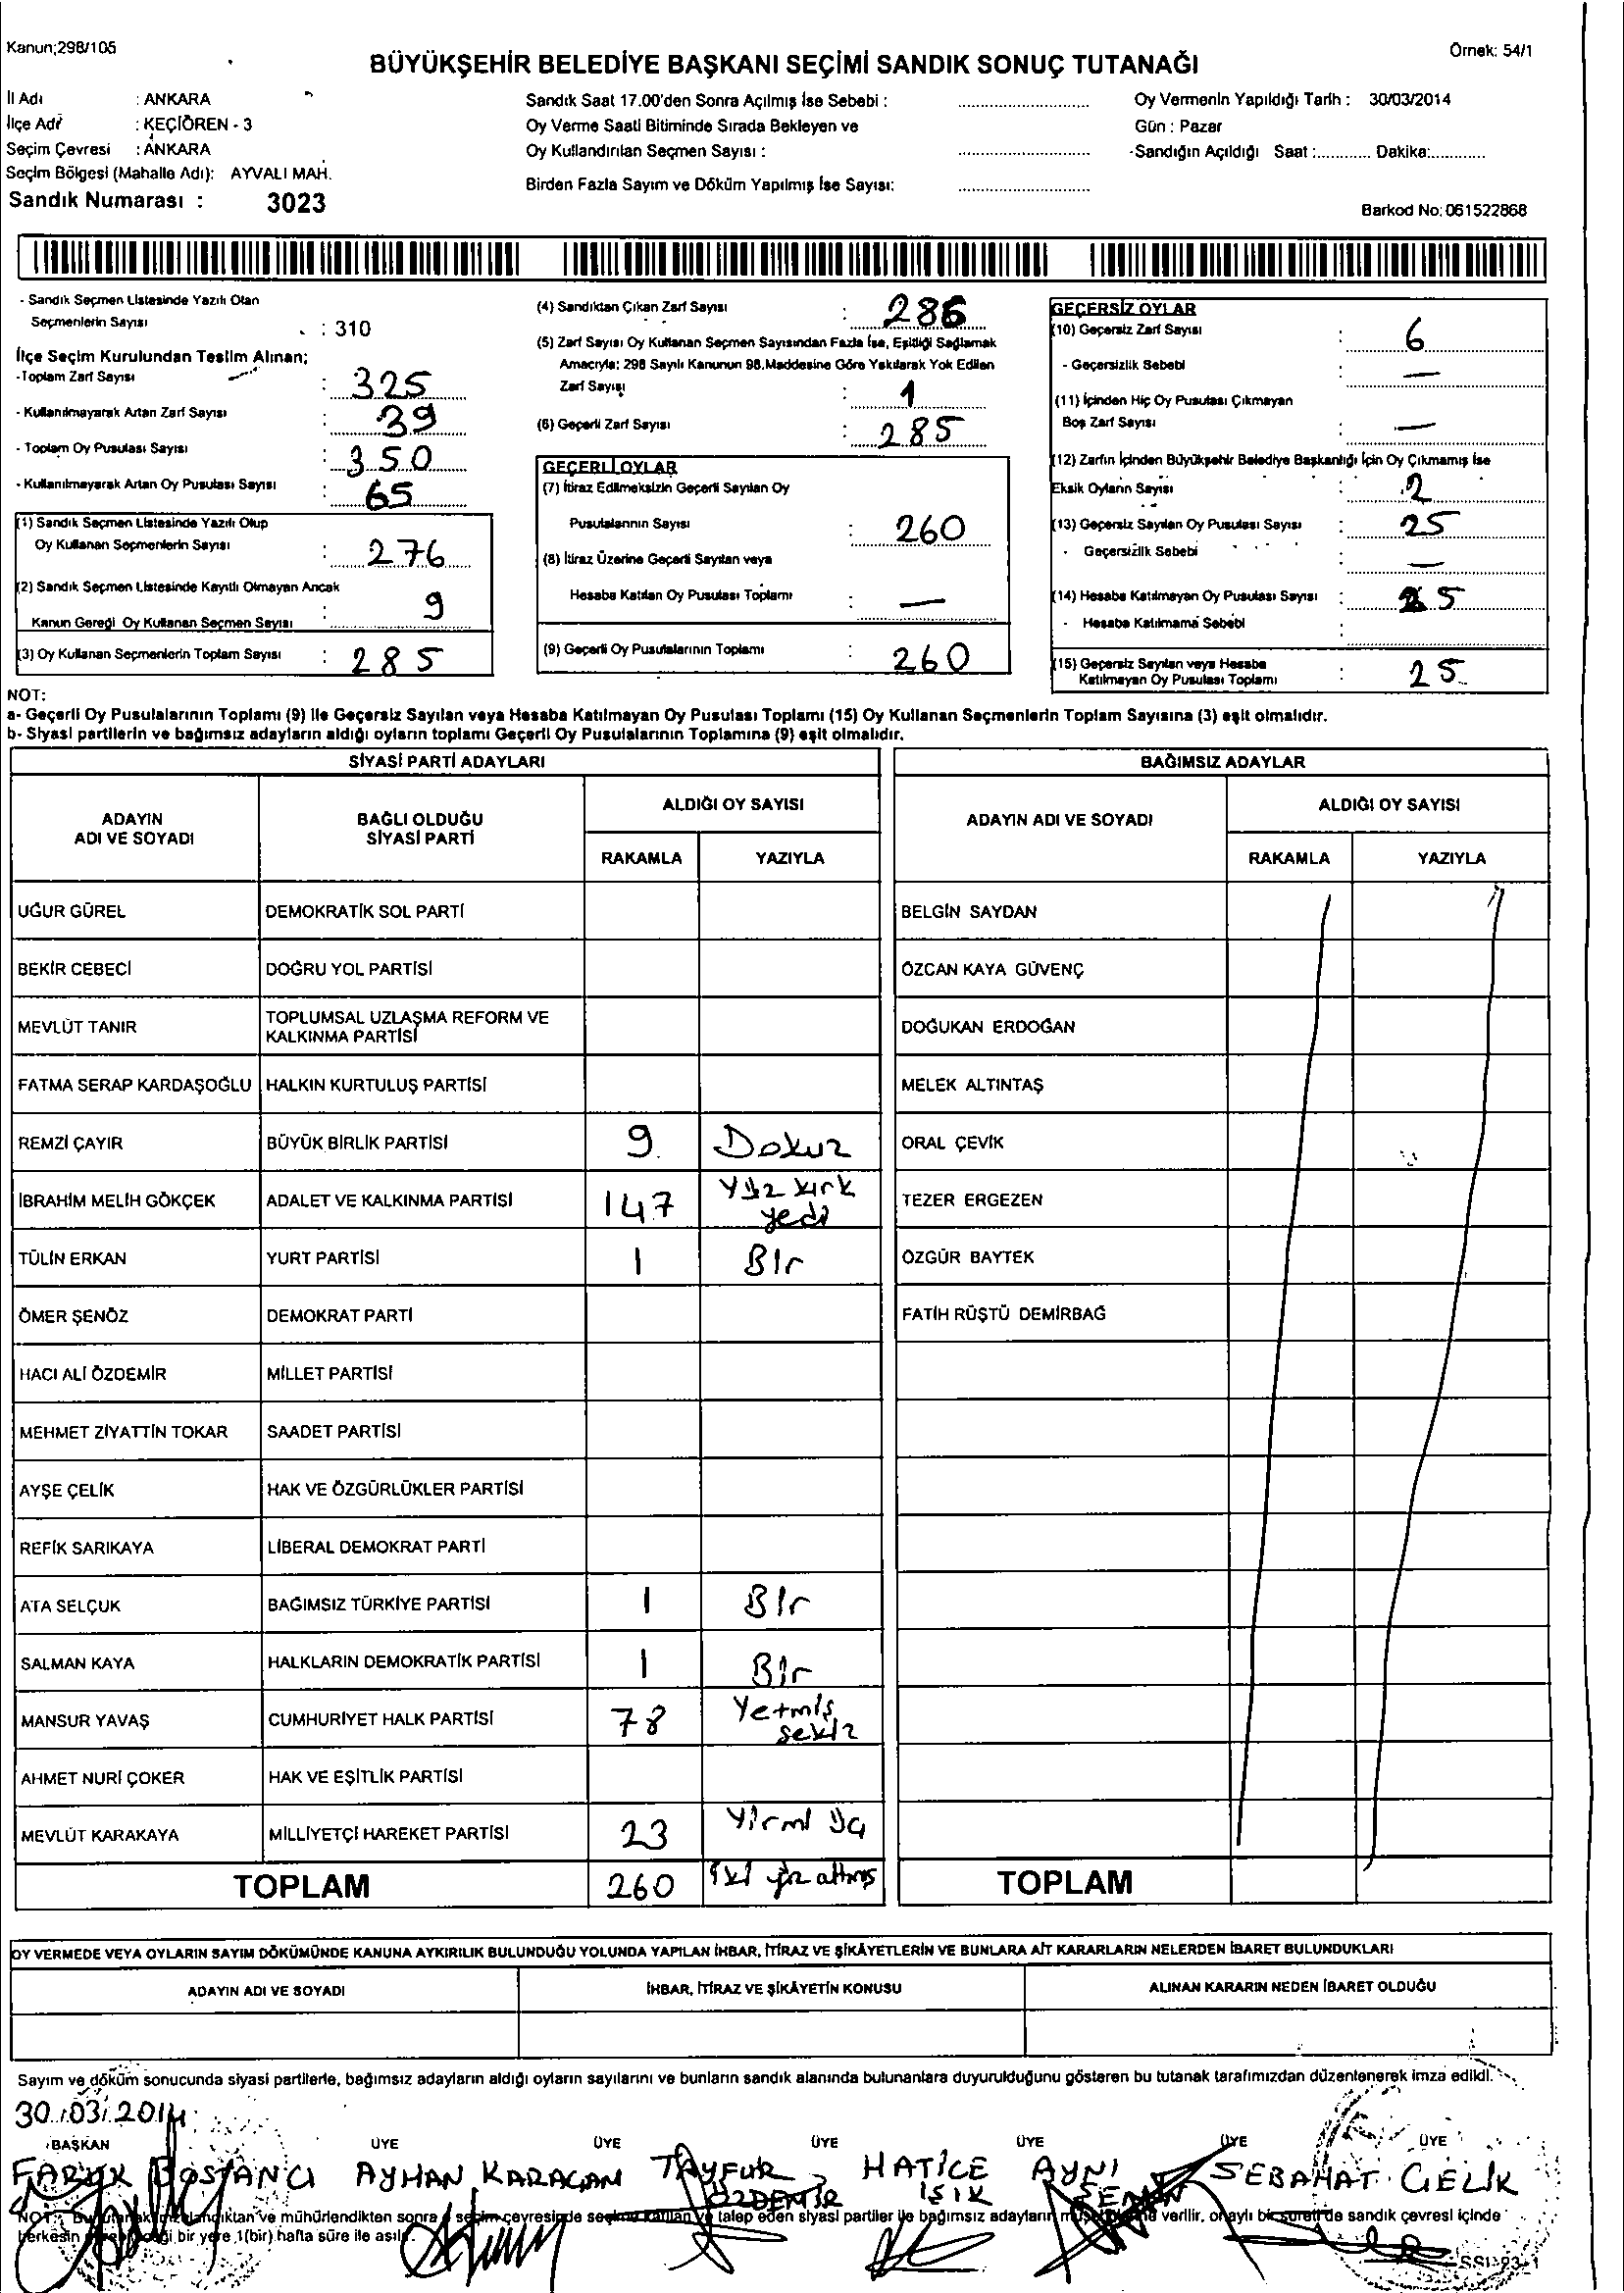 Kanun;298/105
Örnek: 54/1
BÜYÜKŞEHİR BELEDİYE BAŞKANI SEÇİMİ SANDIK SONUÇ TUTANAĞI
İl Adı : ANKARA
İlçe Adı : KEÇİÖREN - 3
Seçim Çevresi : ANKARA
Seçim Bölgesi (Mahalle Adı): AYVALI MAH.
Sandık Numarası : 3023
Sandık Saat 17.00'den Sonra Açılmış İse Sebebi :
Oy Verme Saati Bitiminde Sırada Bekleyen ve
Oy Kullandırılan Seçmen Sayısı :
Birden Fazla Sayım ve Döküm Yapılmış İse Sayısı:
Oy Vermenin Yapıldığı Tarih : 30/03/2014
Gün : Pazar
-Sandığın Açıldığı Saat :............ Dakika:............
Barkod No: 061522868
- Sandık Seçmen Listesinde Yazılı Olan
Seçmenlerin Sayısı : 310
İlçe Seçim Kurulundan Teslim Alınan;
-Toplam Zarf Sayısı : 325
- Kullanılmayarak Artan Zarf Sayısı : 39
- Toplam Oy Pusulası Sayısı : 350
- Kullanılmayarak Artan Oy Pusulası Sayısı : 65
(1) Sandık Seçmen Listesinde Yazılı Olup
Oy Kullanan Seçmenlerin Sayısı : 276
(2) Sandık Seçmen Listesinde Kayıtlı Olmayan Ancak
Kanun Gereği Oy Kullanan Seçmen Sayısı : 9
(3) Oy Kullanan Seçmenlerin Toplam Sayısı : 285
(4) Sandıktan Çıkan Zarf Sayısı : 286
(5) Zarf Sayısı Oy Kullanan Seçmen Sayısından Fazla İse, Eşitliği Sağlamak
Amacıyla; 298 Sayılı Kanunun 98.Maddesine Göre Yakılarak Yok Edilen
Zarf Sayısı : 1
(6) Geçerli Zarf Sayısı : 285
GEÇERLİ OYLAR
(7) İtiraz Edilmeksizin Geçerli Sayılan Oy
Pusulalarının Sayısı : 260
(8) İtiraz Üzerine Geçerli Sayılan veya
Hesaba Katılan Oy Pusulası Toplamı : —
(9) Geçerli Oy Pusulalarının Toplamı : 260
GEÇERSİZ OYLAR
(10) Geçersiz Zarf Sayısı : 6
- Geçersizlik Sebebi : —
(11) İçinden Hiç Oy Pusulası Çıkmayan
Boş Zarf Sayısı : —
(12) Zarfın İçinden Büyükşehir Belediye Başkanlığı İçin Oy Çıkmamış İse
Eksik Oyların Sayısı : 2
(13) Geçersiz Sayılan Oy Pusulası Sayısı : 25
- Geçersizlik Sebebi : —
(14) Hesaba Katılmayan Oy Pusulası Sayısı : 25
- Hesaba Katılmama Sebebi :
(15) Geçersiz Sayılan veya Hesaba
Katılmayan Oy Pusulası Toplamı : 25
NOT:
a- Geçerli Oy Pusulalarının Toplamı (9) ile Geçersiz Sayılan veya Hesaba Katılmayan Oy Pusulası Toplamı (15) Oy Kullanan Seçmenlerin Toplam Sayısına (3) eşit olmalıdır.
b- Siyasi partilerin ve bağımsız adayların aldığı oyların toplamı Geçerli Oy Pusulalarının Toplamına (9) eşit olmalıdır.
SİYASİ PARTİ ADAYLARI
ADAYIN ADI VE SOYADI
BAĞLI OLDUĞU SİYASİ PARTİ
ALDIĞI OY SAYISI
RAKAMLA YAZIYLA
UĞUR GÜREL DEMOKRATİK SOL PARTİ
BEKİR CEBECİ DOĞRU YOL PARTİSİ
MEVLÜT TANIR TOPLUMSAL UZLAŞMA REFORM VE
KALKINMA PARTİSİ
FATMA SERAP KARDAŞOĞLU HALKIN KURTULUŞ PARTİSİ
REMZİ ÇAYIR BÜYÜK BİRLİK PARTİSİ 9 Dokuz
İBRAHİM MELİH GÖKÇEK ADALET VE KALKINMA PARTİSİ 147 Yüz kırk yedi
TÜLİN ERKAN YURT PARTİSİ 1 Bir
ÖMER ŞENÖZ DEMOKRAT PARTİ
HACI ALİ ÖZDEMİR MİLLET PARTİSİ
MEHMET ZİYATTİN TOKAR SAADET PARTİSİ
AYŞE ÇELİK HAK VE ÖZGÜRLÜKLER PARTİSİ
REFİK SARIKAYA LİBERAL DEMOKRAT PARTİ
ATA SELÇUK BAĞIMSIZ TÜRKİYE PARTİSİ 1 Bir
SALMAN KAYA HALKLARIN DEMOKRATİK PARTİSİ 1 Bir
MANSUR YAVAŞ CUMHURİYET HALK PARTİSİ 78 Yetmiş sekiz
AHMET NURİ ÇOKER HAK VE EŞİTLİK PARTİSİ
MEVLÜT KARAKAYA MİLLİYETÇİ HAREKET PARTİSİ 23 Yirmi üç
TOPLAM 260 iki yüz altmış
BAĞIMSIZ ADAYLAR
ADAYIN ADI VE SOYADI
ALDIĞI OY SAYISI
RAKAMLA YAZIYLA
BELGİN SAYDAN
ÖZCAN KAYA GÜVENÇ
DOĞUKAN ERDOĞAN
MELEK ALTINTAŞ
ORAL ÇEVİK
TEZER ERGEZEN
ÖZGÜR BAYTEK
FATİH RÜŞTÜ DEMİRBAĞ
TOPLAM
OY VERMEDE VEYA OYLARIN SAYIM DÖKÜMÜNDE KANUNA AYKIRILIK BULUNDUĞU YOLUNDA YAPILAN İHBAR, İTİRAZ VE ŞİKÂYETLERİN VE BUNLARA AİT KARARLARIN NELERDEN İBARET BULUNDUKLARI
ADAYIN ADI VE SOYADI İHBAR, İTİRAZ VE ŞİKÂYETİN KONUSU ALINAN KARARIN NEDEN İBARET OLDUĞU
Sayım ve döküm sonucunda siyasi partilerle, bağımsız adayların aldığı oyların sayılarını ve bunların sandık alanında bulunanlara duyurulduğunu gösteren bu tutanak tarafımızdan düzenlenerek imza edildi.
30/03/2014
BAŞKAN ÜYE ÜYE ÜYE ÜYE ÜYE ÜYE
FARUK BOSTANCI AYHAN KARACAN TAYFUR ÖZDEMİR HATİCE IŞIK AYNİ SEBAHAT ÇELİK
NOT: ve mühürlendikten sonra seçim çevresinde talep eden siyasi partiler ile bağımsız adayların verilir, onaylı bir sureti de sandık çevresi içinde
herkesin bir yere 1(bir) hafta süre ile asılır.